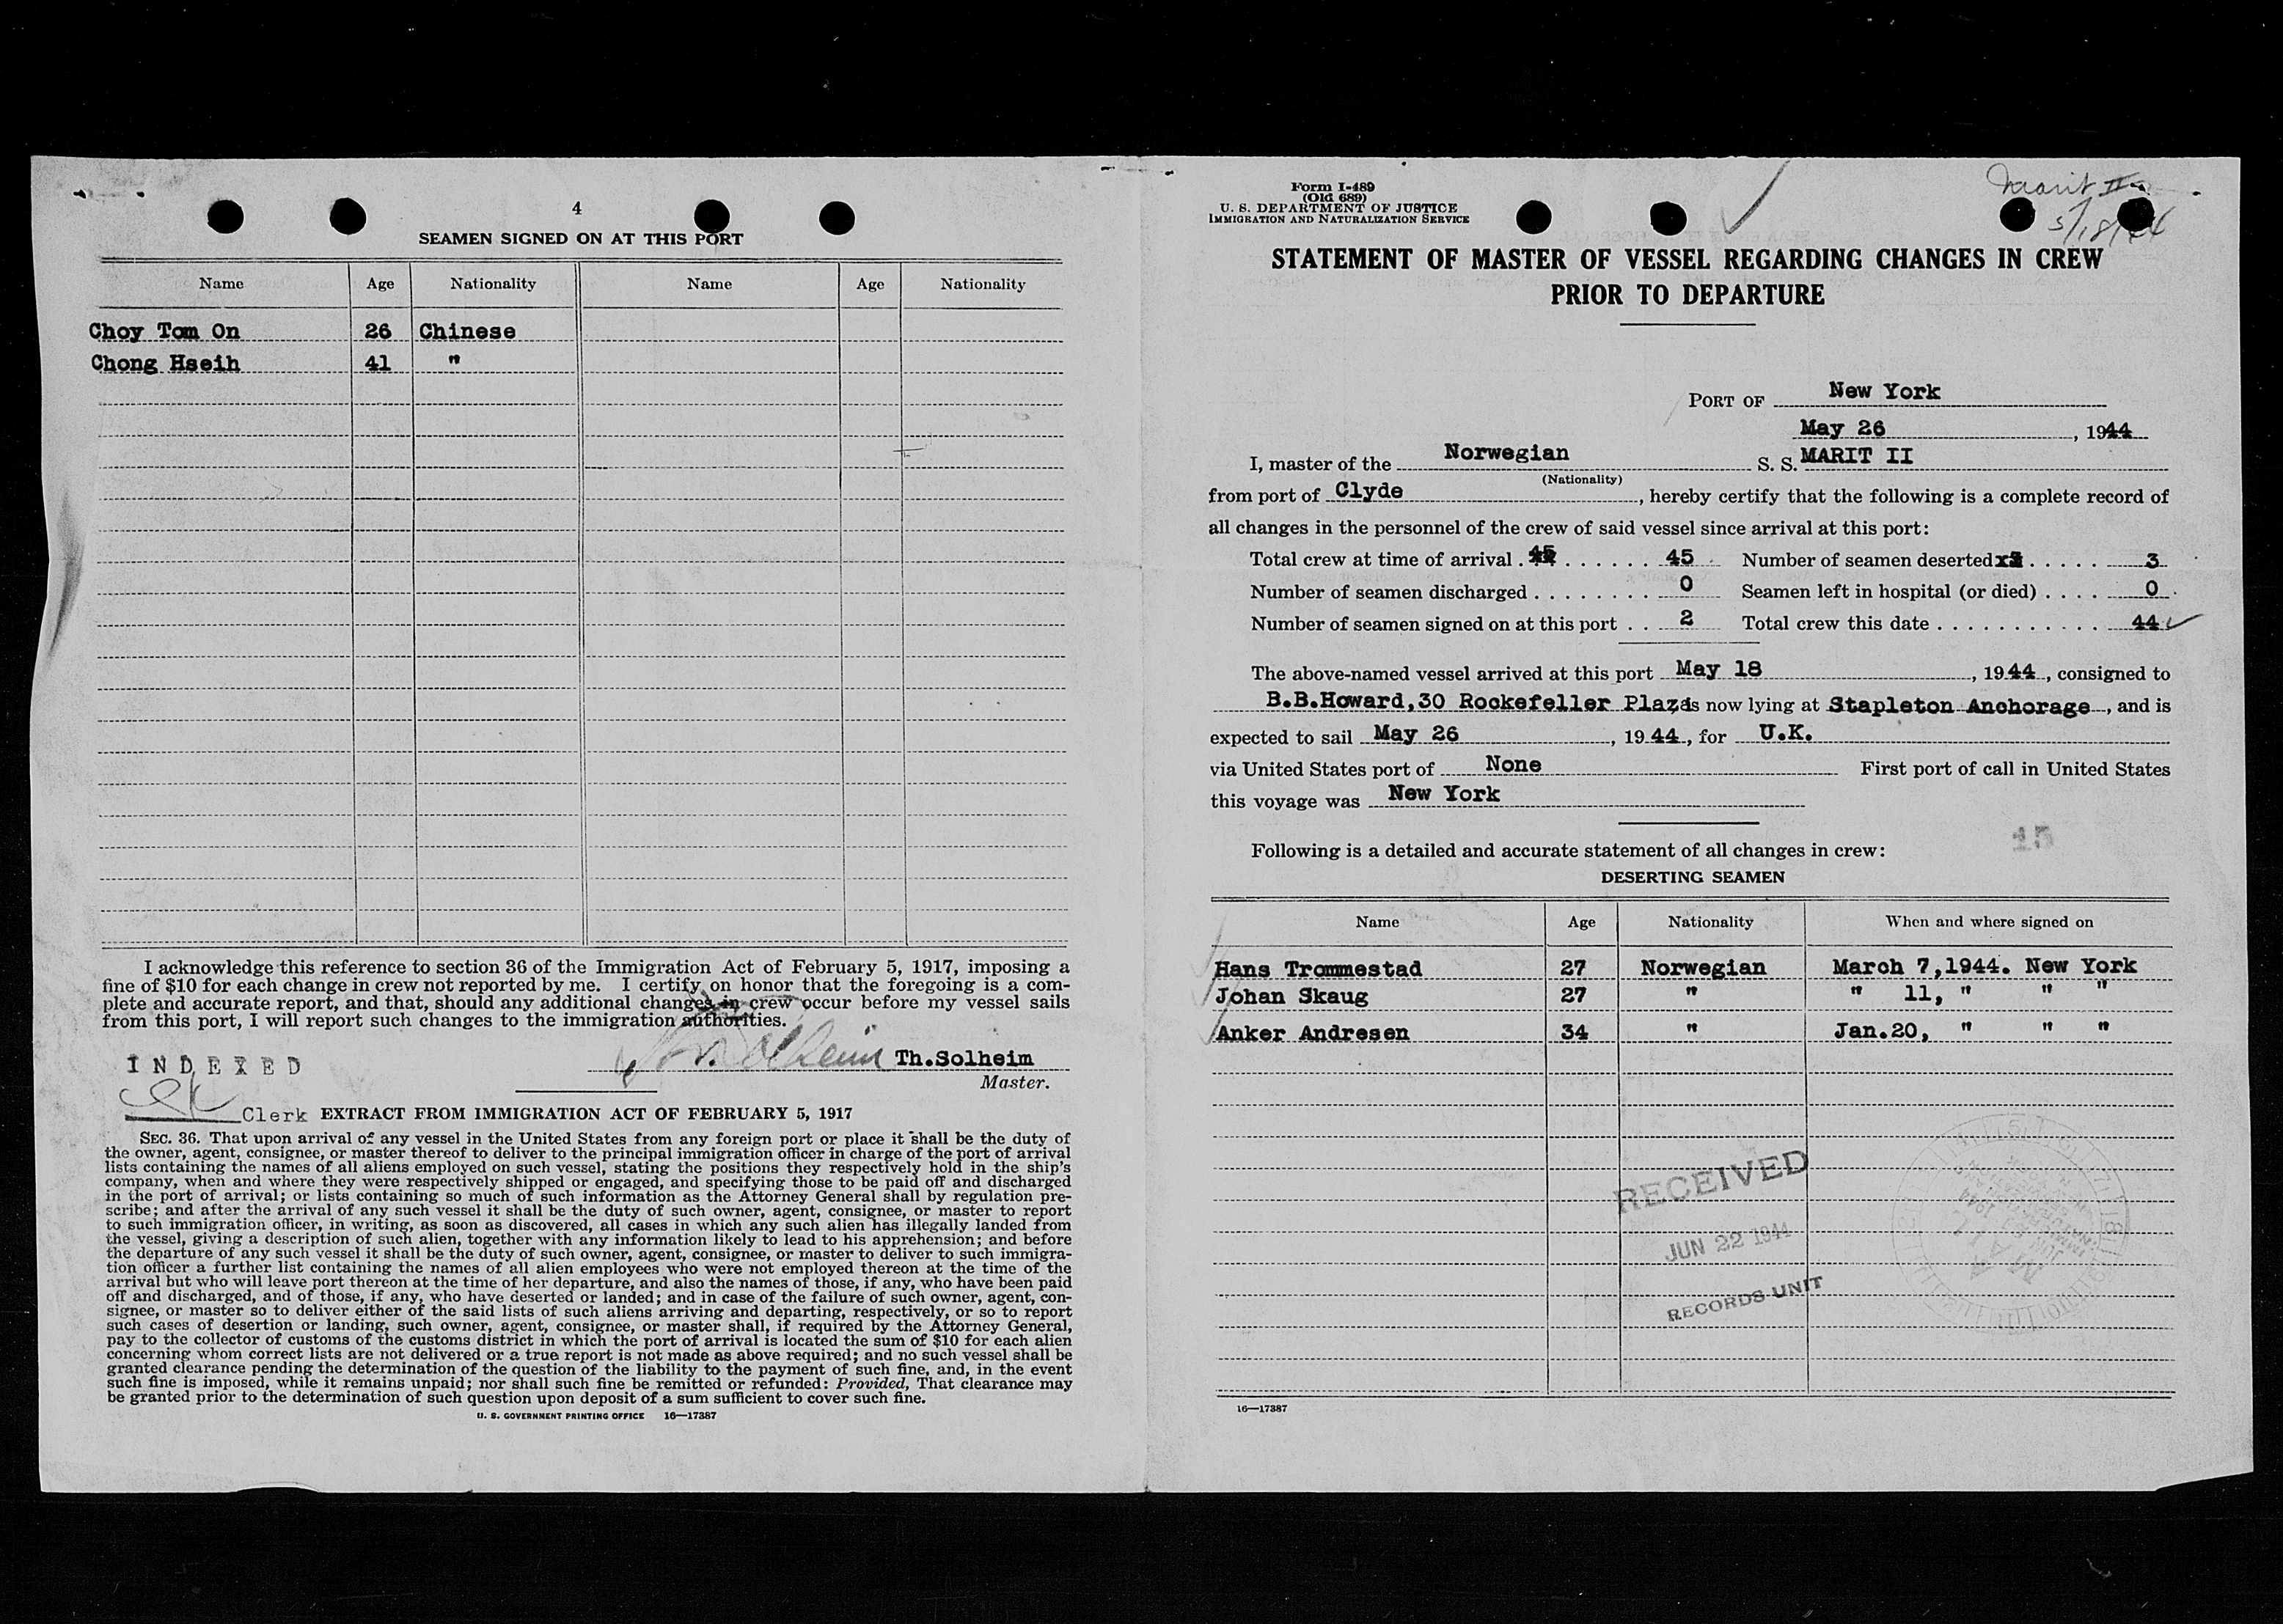 4
SEAMEN SIGNED ON AT THIS PORT
Name Age Nationality Name Age Nationality
Choy Tom On 26 Chinese
Chong Hseih 41 "
I acknowledge this reference to section 36 of the Immigration Act of February 5, 1917, imposing a
fine of $10 for each change in crew not reported by me. I certify on honor that the foregoing is a com-
plete and accurate report, and that, should any additional changes in crew occur before my vessel sails
from this port, I will report such changes to the immigration authorities.
INDEXED
Th.Solheim
Master.
Clerk EXTRACT FROM IMMIGRATION ACT OF FEBRUARY 5, 1917
SEC. 36. That upon arrival of any vessel in the United States from any foreign port or place it shall be the duty of
the owner, agent, consignee, or master thereof to deliver to the principal immigration officer in charge of the port of arrival
lists containing the names of all aliens employed on such vessel, stating the positions they respectively hold in the ship's
company, when and where they were respectively shipped or engaged, and specifying those to be paid off and discharged
in the port of arrival; or lists containing so much of such information as the Attorney General shall by regulation pre-
scribe; and after the arrival of any such vessel it shall be the duty of such owner, agent, consignee, or master to report
to such immigration officer, in writing, as soon as discovered, all cases in which any such alien has illegally landed from
the vessel, giving a description of such alien, together with any information likely to lead to his apprehension; and before
the departure of any such vessel it shall be the duty of such owner, agent, consignee, or master to deliver to such immigra-
tion officer a further list containing the names of all alien employees who were not employed thereon at the time of the
arrival but who will leave port thereon at the time of her departure, and also the names of those, if any, who have been paid
off and discharged, and of those, if any, who have deserted or landed; and in case of the failure of such owner, agent, con-
signee, or master so to deliver either of the said lists of such aliens arriving and departing, respectively, or so to report
such cases of desertion or landing, such owner, agent, consignee, or master shall, if required by the Attorney General,
pay to the collector of customs of the customs district in which the port of arrival is located the sum of $10 for each alien
concerning whom correct lists are not delivered or a true report is not made as above required; and no such vessel shall be
granted clearance pending the determination of the question of the liability to the payment of such fine, and, in the event
such fine is imposed, while it remains unpaid; nor shall such fine be remitted or refunded: Provided, That clearance may
be granted prior to the determination of such question upon deposit of a sum sufficient to cover such fine.
U. S. GOVERNMENT PRINTING OFFICE 16—17387
Form I-489
(Old 689)
U. S. DEPARTMENT OF JUSTICE
IMMIGRATION AND NATURALIZATION SERVICE
Marit II
5/18/44
STATEMENT OF MASTER OF VESSEL REGARDING CHANGES IN CREW
PRIOR TO DEPARTURE
PORT OF New York
May 26, 1944
I, master of the Norwegian S. S. MARIT II
(Nationality)
from port of Clyde, hereby certify that the following is a complete record of
all changes in the personnel of the crew of said vessel since arrival at this port:
Total crew at time of arrival . 45 . . . . . . 45 Number of seamen deserted . . . . . 3
Number of seamen discharged . . . . . . . . 0 Seamen left in hospital (or died) . . . . 0
Number of seamen signed on at this port . . 2 Total crew this date . . . . . . . . . . . 44
The above-named vessel arrived at this port May 18, 1944, consigned to
B.B.Howard,30 Rockefeller Plaza is now lying at Stapleton Anchorage, and is
expected to sail May 26, 1944, for U.K.
via United States port of None First port of call in United States
this voyage was New York
15
Following is a detailed and accurate statement of all changes in crew:
DESERTING SEAMEN
Name Age Nationality When and where signed on
Hans Trommestad 27 Norwegian March 7,1944. New York
Johan Skaug 27 " " 11, " " "
Anker Andresen 34 " Jan.20, " " "
RECEIVED
JUN 22 1944
RECORDS UNIT
16—17387